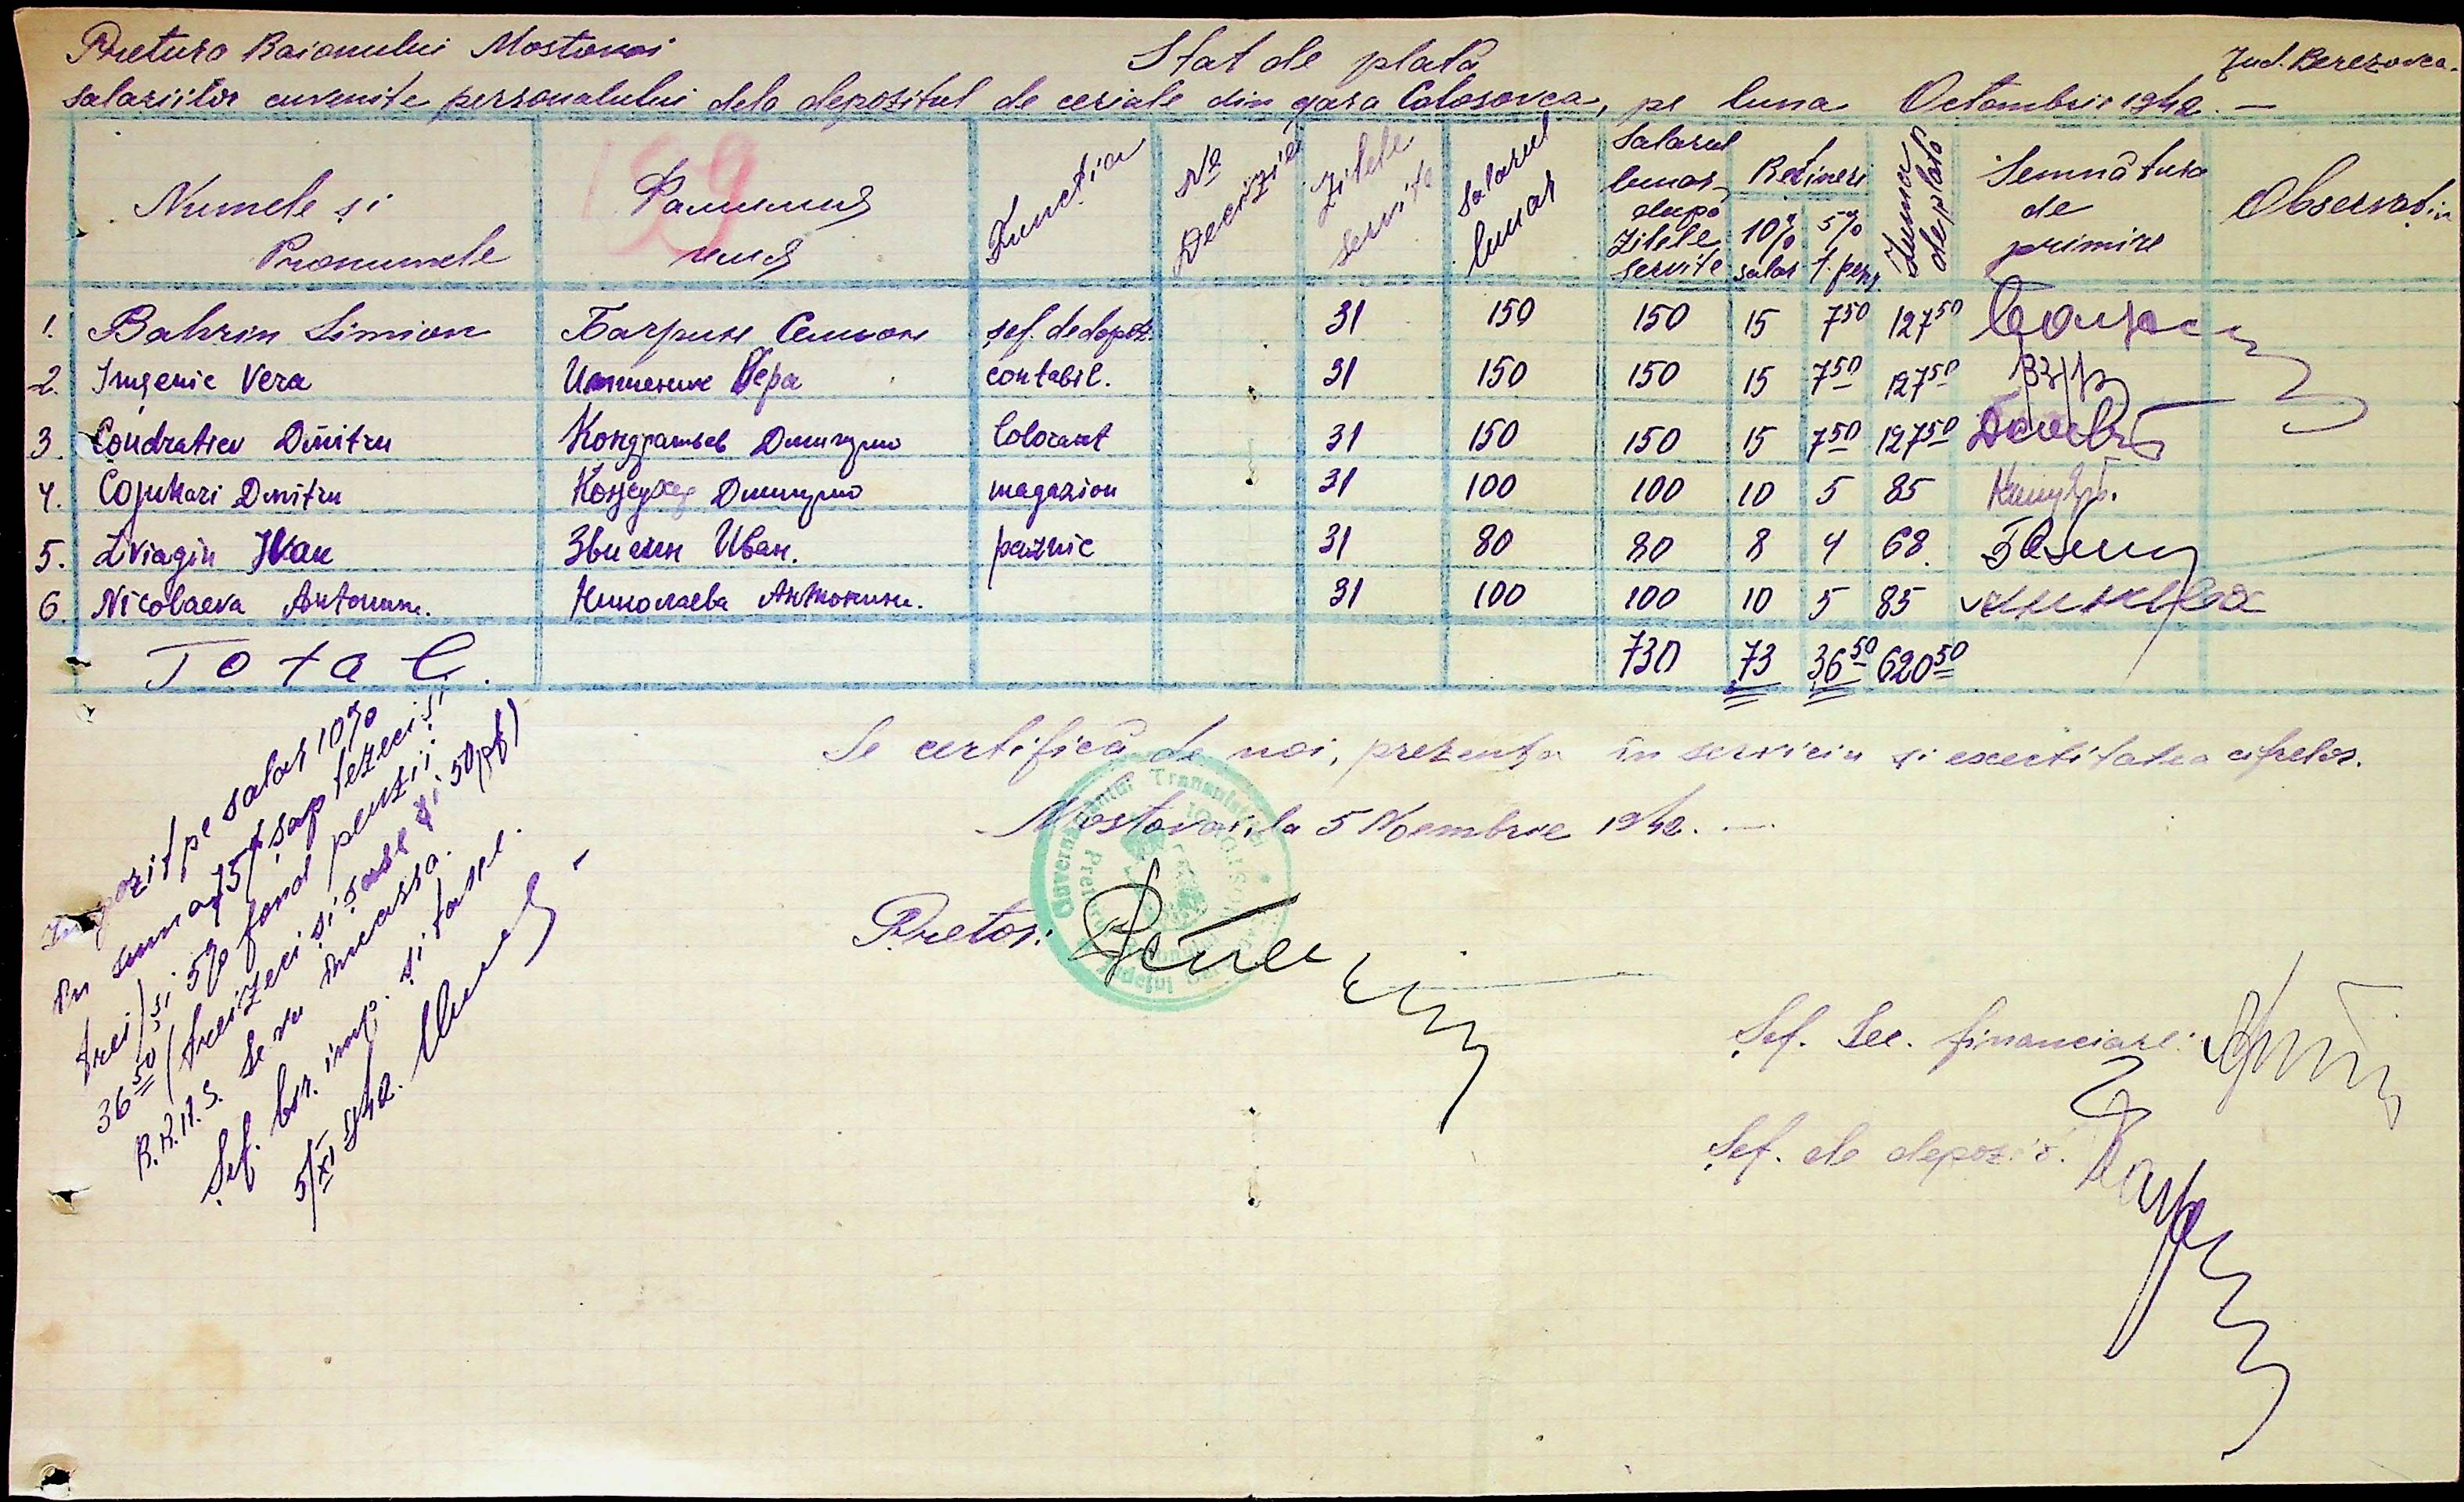 Pretura Raionului Mostovoi
Stat de plată
Jud. Berezovca.
salariilor cuvenite personalului dela depozitul de ceriale din gara Colosovca, pe luna Octombrie 1942. —
Numele și Pronumele
129
Фамилия имя
Funcția
No Decizie
Zilele servite
Salarul lunar
Salarul lunar după zilele servite
Rețineri
10% salar
5% f. pens
Suma de plată
Semnătura de primire
Observații
1. Bahrin Simion Бахрин Семион șef. de depoz. 31 150 150 15 7 50 127 50
2. Imșenic Vera Вера contabil. 31 150 150 15 7 50 127 50
3. Condratiev Dimitru Кондратьев Дмитрио Colorant 31 150 150 15 7 50 127 50
4. Cojuhari Dmitru Кожухар Дмитрио magazion 31 100 100 10 5 85
5. Zviagin Ivan Звигин Иван. paznic 31 80 80 8 4 68.
6. Nicolaeva Antonina. Николаева Антонина. 31 100 100 10 5 85
Total. 730 73 36 50 620 50
Se certifică de noi, prezența în serviciu și exactitatea cifrelor.
Mostovoi, la 5 Noembrie 1942. —
Pretor:
Guvernământul Transnistriei
Șef. Sec. financiare:
Șef. de depozit.
Impozit pe salar 10%
în suma 73 (șaptezeci și
trei) și 5% fond pensii
36 50 (treizeci și șase și 50 pf)
R.K.K.S. Se va încassa.
Șef. bir. imp. și taxe.
5/XI 942.